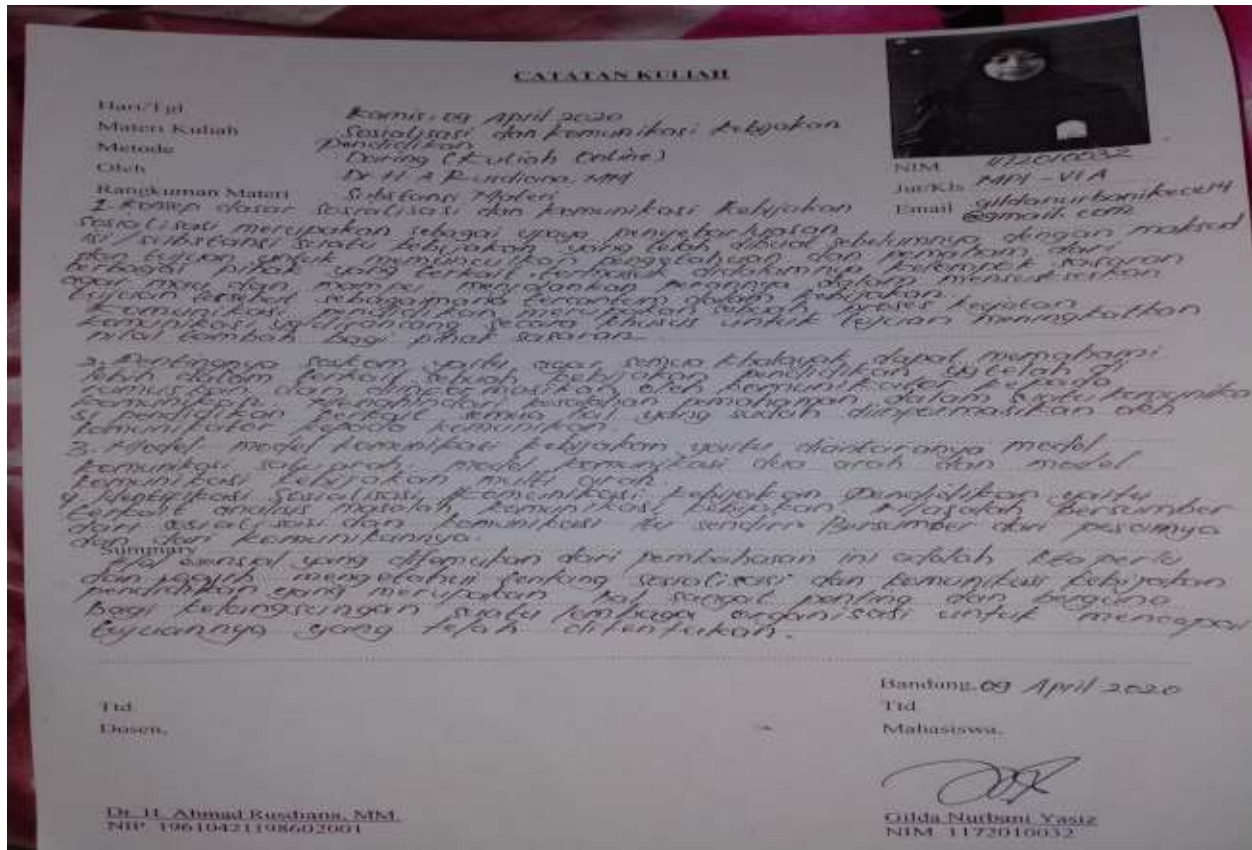 CATATAN KULIAH
Hari/Tgl Kamis, 09 April 2020
Materi Kuliah Sosialisasi dan Komunikasi Kebijakan
Pendidikan
Metode Daring (Kuliah Online)
Oleh Dr H A Rusdiana, MM
NIM 1172010032
Jur/Kls MPI - VI A
Email gildanurbanikece14
@gmail.com
Rangkuman Materi Substansi Materi
1. Konsep dasar sosialisasi dan komunikasi Kebijakan
Sosialisasi merupakan sebagai upaya penyebarluasan
isi/substansi suatu kebijakan yang telah dibuat sebelumnya dengan maksud
dan tujuan untuk memunculkan pengetahuan dan pemahaman dari
berbagai pihak yang terkait, termasuk didalamnya kelompok sasaran
agar mau dan mampu menjalankan perannya dalam mensukseskan
tujuan tersebut sebagaimana tercantum dalam kebijakan.
Komunikasi pendidikan merupakan sebuah proses kegiatan
komunikasi yg dirancang secara khusus untuk tujuan meningkatkan
nilai tambah bagi pihak sasaran.
2. Pentingnya soskom yaitu agar semua khalayak dapat memahami
lebih dalam terkait sebuah kebijakan pendidikan yg telah di
rumuskan dan diinformasikan oleh komunikator kepada
komunikan. pemahaman dalam suatu komunika
si pendidikan terkait semua hal yang sudah diinpormasikan oleh
komunikator kepada komunikan.
3. Model model komunikasi kebijakan yaitu diantaranya model
komunikasi satu arah, model komunikasi dua arah dan model
komunikasi kebijakan multi arah
4 Identifikasi Sosialisasi, Komunikasi kebijakan Pendidikan yaitu
terkait analisis masalah komunikasi kebijakan. Masalah bersumber
dari sosialisasi dan komunikasi itu sendiri Bersumber dari pesannya
dan dari komunikannya.
Summary
Hal esensial yang ditemukan dari pembahasan ini adalah kita perlu
dan mengetahui tentang sosialisasi dan komunikasi kebijakan
pendidikan yang merupakan hal sangat penting dan berguna
bagi kelangsungan suatu lembaga organisasi untuk mencapai
tujuannya yang telah ditentukan.
Bandung, 09 April 2020
Ttd Ttd
Dosen, Mahasiswa,
Dr. H. Ahmad Rusdiana, MM. Gilda Nurbani Yasiz
NIP. 19610421198602001 NIM 1172010032